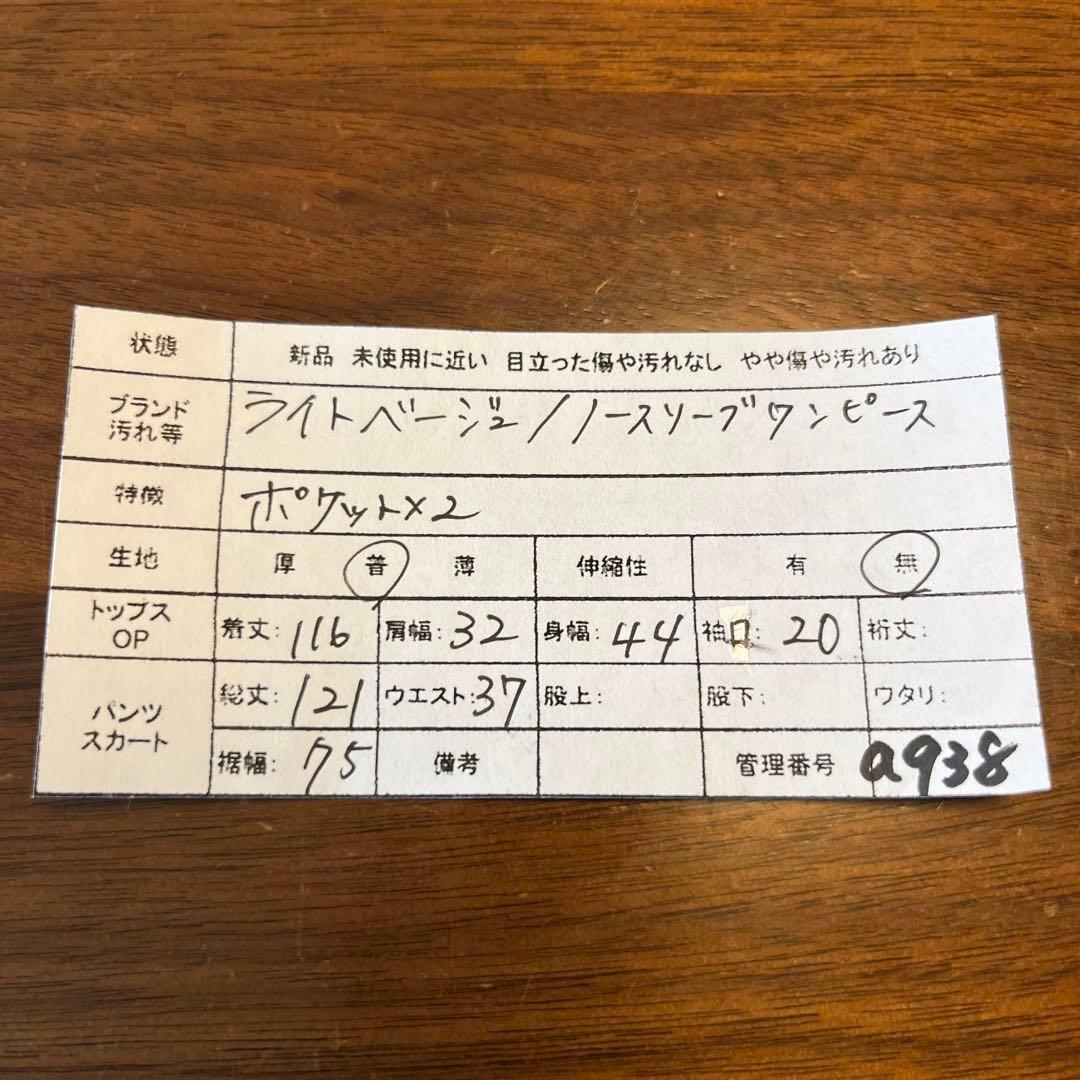 状態 新品 未使用に近い 目立った傷や汚れなし やや傷や汚れあり
ブランド
汚れ等 ライトベージュ/ノースリーブワンピース
特徴 ポケット×2
生地 厚 普 薄 伸縮性 有 無
トップス
OP 着丈: 116 肩幅: 32 身幅: 44 袖口: 20 裄丈:
パンツ
スカート 総丈: 121 ウエスト: 37 股上: 股下: ワタリ:
裾幅: 75 備考 管理番号 a938